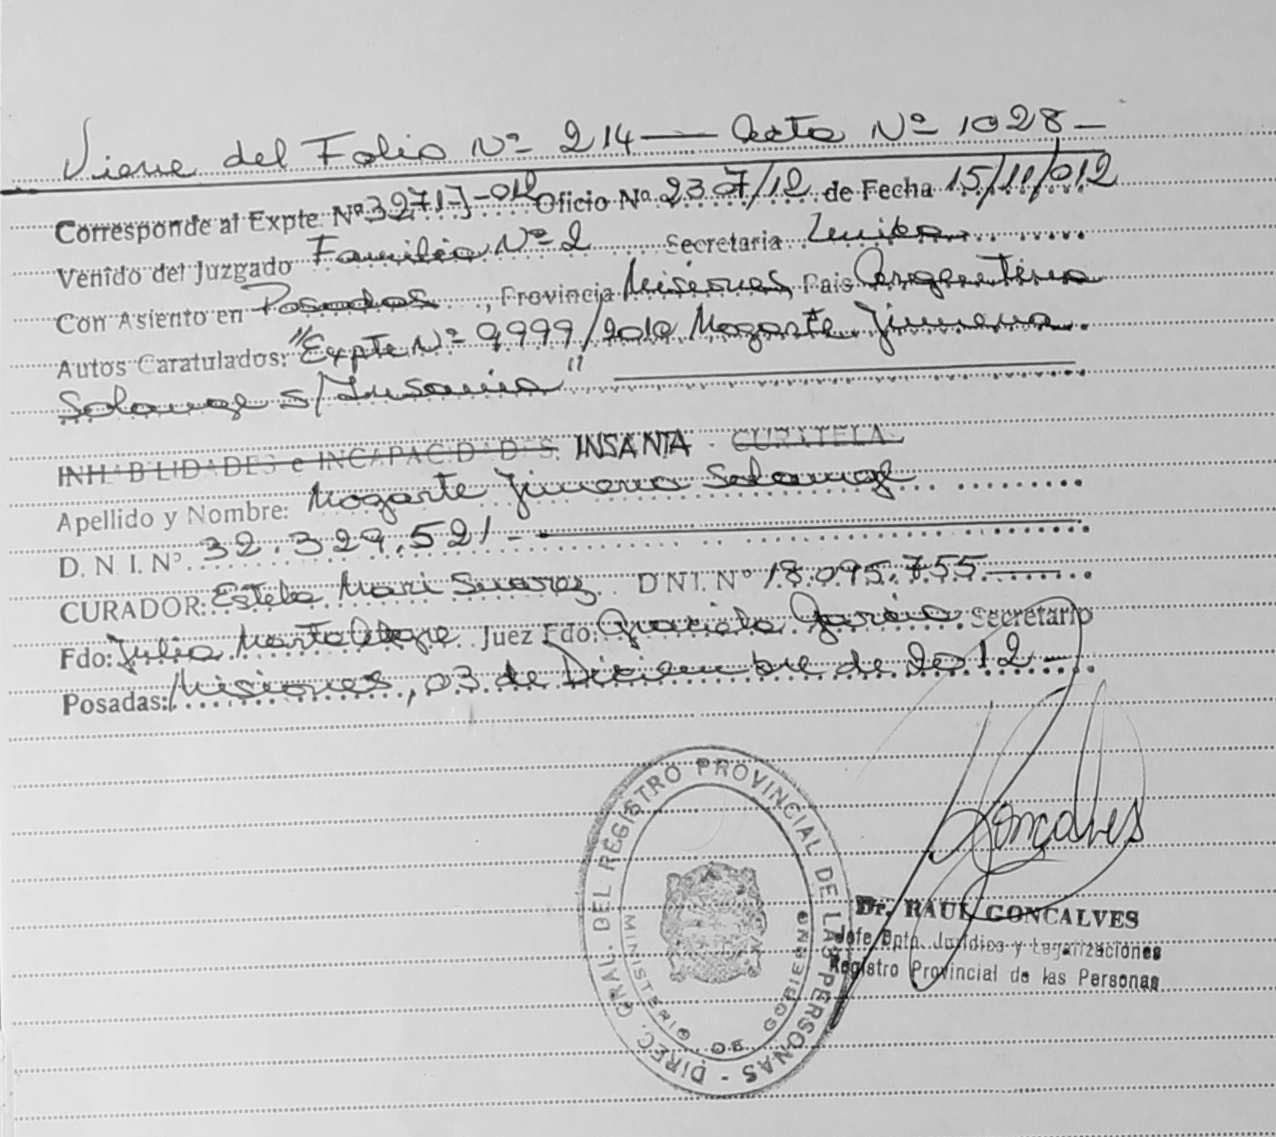 Viene del Folio Nº 214 — Acta Nº 1028 —
Corresponde al Expte. Nº 3271-J-012 Oficio Nº 2307/12 de Fecha 15/11/012
Venido del Juzgado Familia Nº 2 Secretaria Unica
Con Asiento en Posadas, Provincia Misiones, Pais Argentina
Autos Caratulados: "Expte Nº 9999/2010 Mozarte Jimena
Solange s/Insania"
INHABILIDADES e INCAPACIDADES. INSANIA - CURATELA
Apellido y Nombre: Mozarte Jimena Solange
D. N. I. Nº 32.329.521 -
CURADOR: Estela Mari Suarez DNI. Nº 18.095.755
Fdo: Julia Marta Alegre Juez Fdo: Graciela Secretario
Posadas: Misiones, 03 de Diciembre de 2012 -
Goncalves
DIREC. GRAL. DEL REGISTRO PROVINCIAL DE LAS PERSONAS -
MINISTERIO DE GOBIERNO
Dr. RAUL GONCALVES
Jefe Dpto. Jurídico y Legalizaciones
Registro Provincial de las Personas